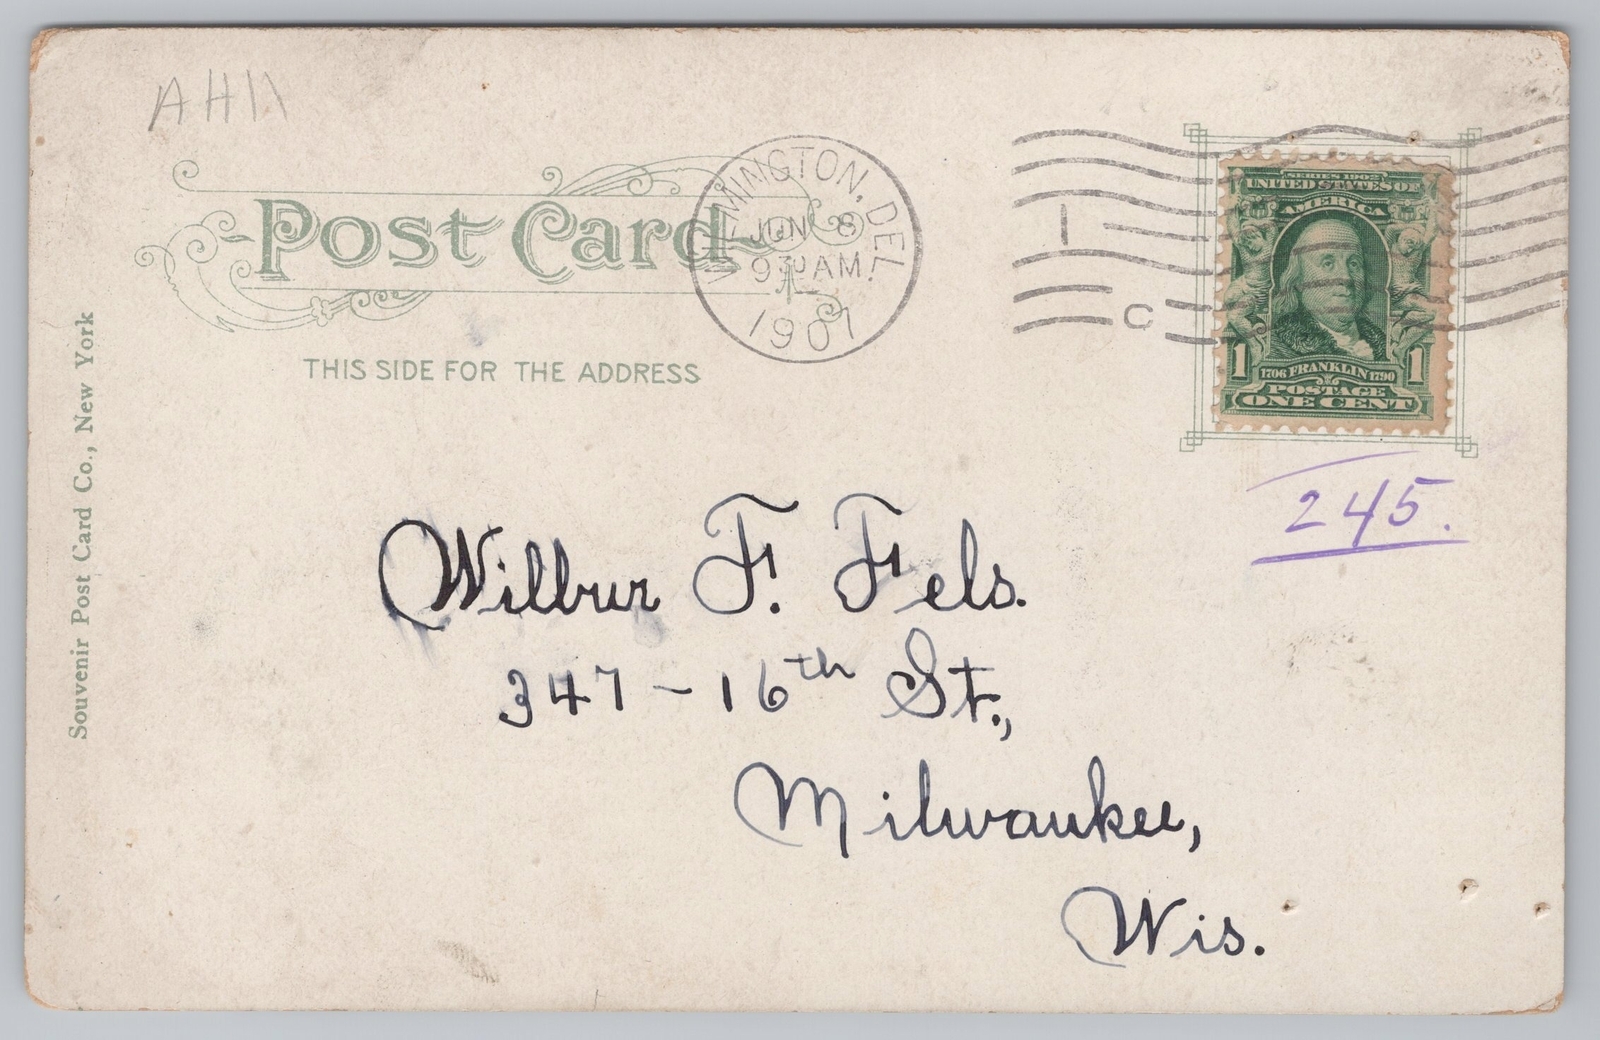 AH11
Post Card
THIS SIDE FOR THE ADDRESS
Souvenir Post Card Co., New York
WILMINGTON, DEL.
JUN 8
930 AM
1907
1
C
SERIES 1902
UNITED STATES OF
AMERICA
1 1
1706 FRANKLIN 1790
POSTAGE
ONE CENT
245.
Wilbur F. Fels.
347 - 16th St.,
Milwaukee,
Wis.